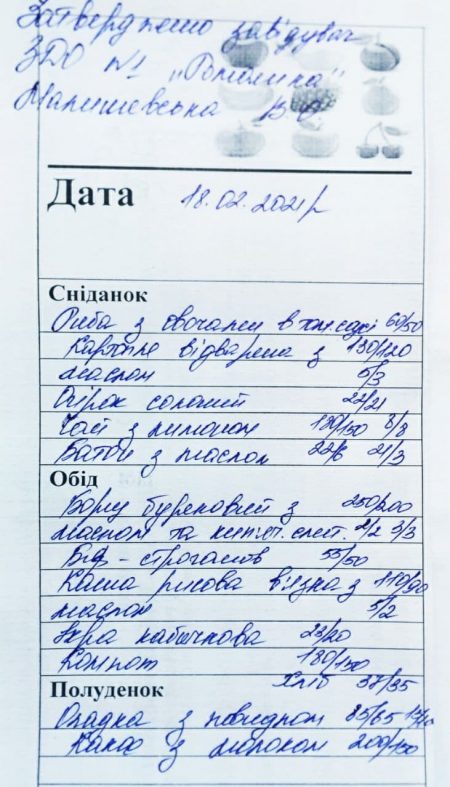 Затверджено завідувач
ЗДО №1 „Ромашка"
Малишевська В.О.
Дата 18.02.2021р
Сніданок
Риба з овочами в томаті 60/50
Картопля відварена з 130/120
маслом 5/3
Огірок солоний 22/21
Чай з лимоном 180/150 8/8
Батон з маслом 22/6 21/3
Обід
Борщ буряковий з 250/200
маслом та смет. 2/2 3/3
Біф-строганов 55/50
Каша рисова в'язка з 110/90
маслом 5/2
Ікра кабачкова 23/20
Компот 180/150
Хліб 37/35
Полуденок
Оладка з повидлом 85/65
Какао з молоком 200/150